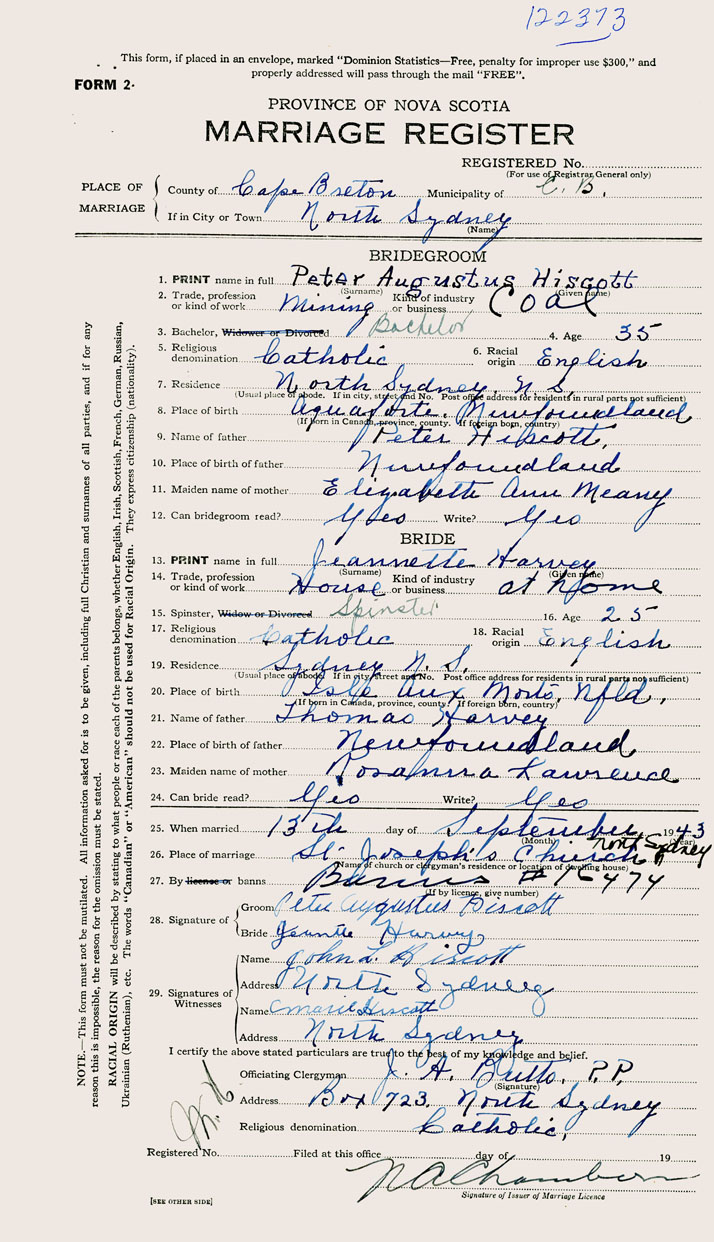 122373
This form, if placed in an envelope, marked "Dominion Statistics—Free, penalty for improper use $300," and
properly addressed will pass through the mail "FREE".
FORM 2.
PROVINCE OF NOVA SCOTIA
MARRIAGE REGISTER
REGISTERED No.
(For use of Registrar General only)
PLACE OF MARRIAGE
County of Cape Breton Municipality of C. B.
If in City or Town North Sydney
(Name)
BRIDEGROOM
1. PRINT name in full Peter Augustus Hiscott
(Surname) (Given name)
2. Trade, profession or kind of work Mining Kind of industry or business Coal
3. Bachelor, Widower or Divorced Bachelor 4. Age 35
5. Religious denomination Catholic 6. Racial origin English
7. Residence North Sydney, N. S.
(Usual place of abode. If in city, street and No. Post office address for residents in rural parts not sufficient)
8. Place of birth Aquaforte, Newfoundland
(If born in Canada, province, county. If foreign born, country)
9. Name of father Peter Hiscott,
10. Place of birth of father Newfoundland
11. Maiden name of mother Elizabeth Ann Meany
12. Can bridegroom read? Yes Write? Yes
BRIDE
13. PRINT name in full Jeannette Harvey
(Surname) (Given name)
14. Trade, profession or kind of work House Kind of industry or business at home
15. Spinster, Widow or Divorced Spinster 16. Age 25
17. Religious denomination Catholic 18. Racial origin English
19. Residence Sydney N. S.
(Usual place of abode. If in city, street and No. Post office address for residents in rural parts not sufficient)
20. Place of birth Isle Aux Morts, Nfld,
(If born in Canada, province, county. If foreign born, country)
21. Name of father Thomas Harvey
22. Place of birth of father Newfoundland
23. Maiden name of mother Rosanna Lawrence
24. Can bride read? Yes Write? Yes
25. When married 13th day of September 1943
(Month) (Year)
26. Place of marriage St. Joseph's Church, North Sydney
(Name of church or clergyman's residence or location of dwelling house)
27. By license or banns Banns # 16474
(If by licence, give number)
28. Signature of
Groom Peter Augustus Hiscott
Bride Harvey
29. Signatures of Witnesses
Name John L. Hiscott
Address North Sydney
Name Hiscott
Address North Sydney
I certify the above stated particulars are true to the best of my knowledge and belief.
Officiating Clergyman J. A. Butts, P.P.
(Signature)
Address Box 723. North Sydney
Religious denomination Catholic,
Registered No. Filed at this office day of 19
Signature of Issuer of Marriage Licence
[SEE OTHER SIDE]
NOTE.—This form must not be mutilated. All information asked for is to be given, including full Christian and surnames of all parties, and if for any
reason this is impossible, the reason for the omission must be stated.
RACIAL ORIGIN will be described by stating to what people or race each of the parents belongs, whether English, Irish, Scottish, French, German, Russian,
Ukrainian (Ruthenian), etc. The words "Canadian" or "American" should not be used for Racial Origin. They express citizenship (nationality).